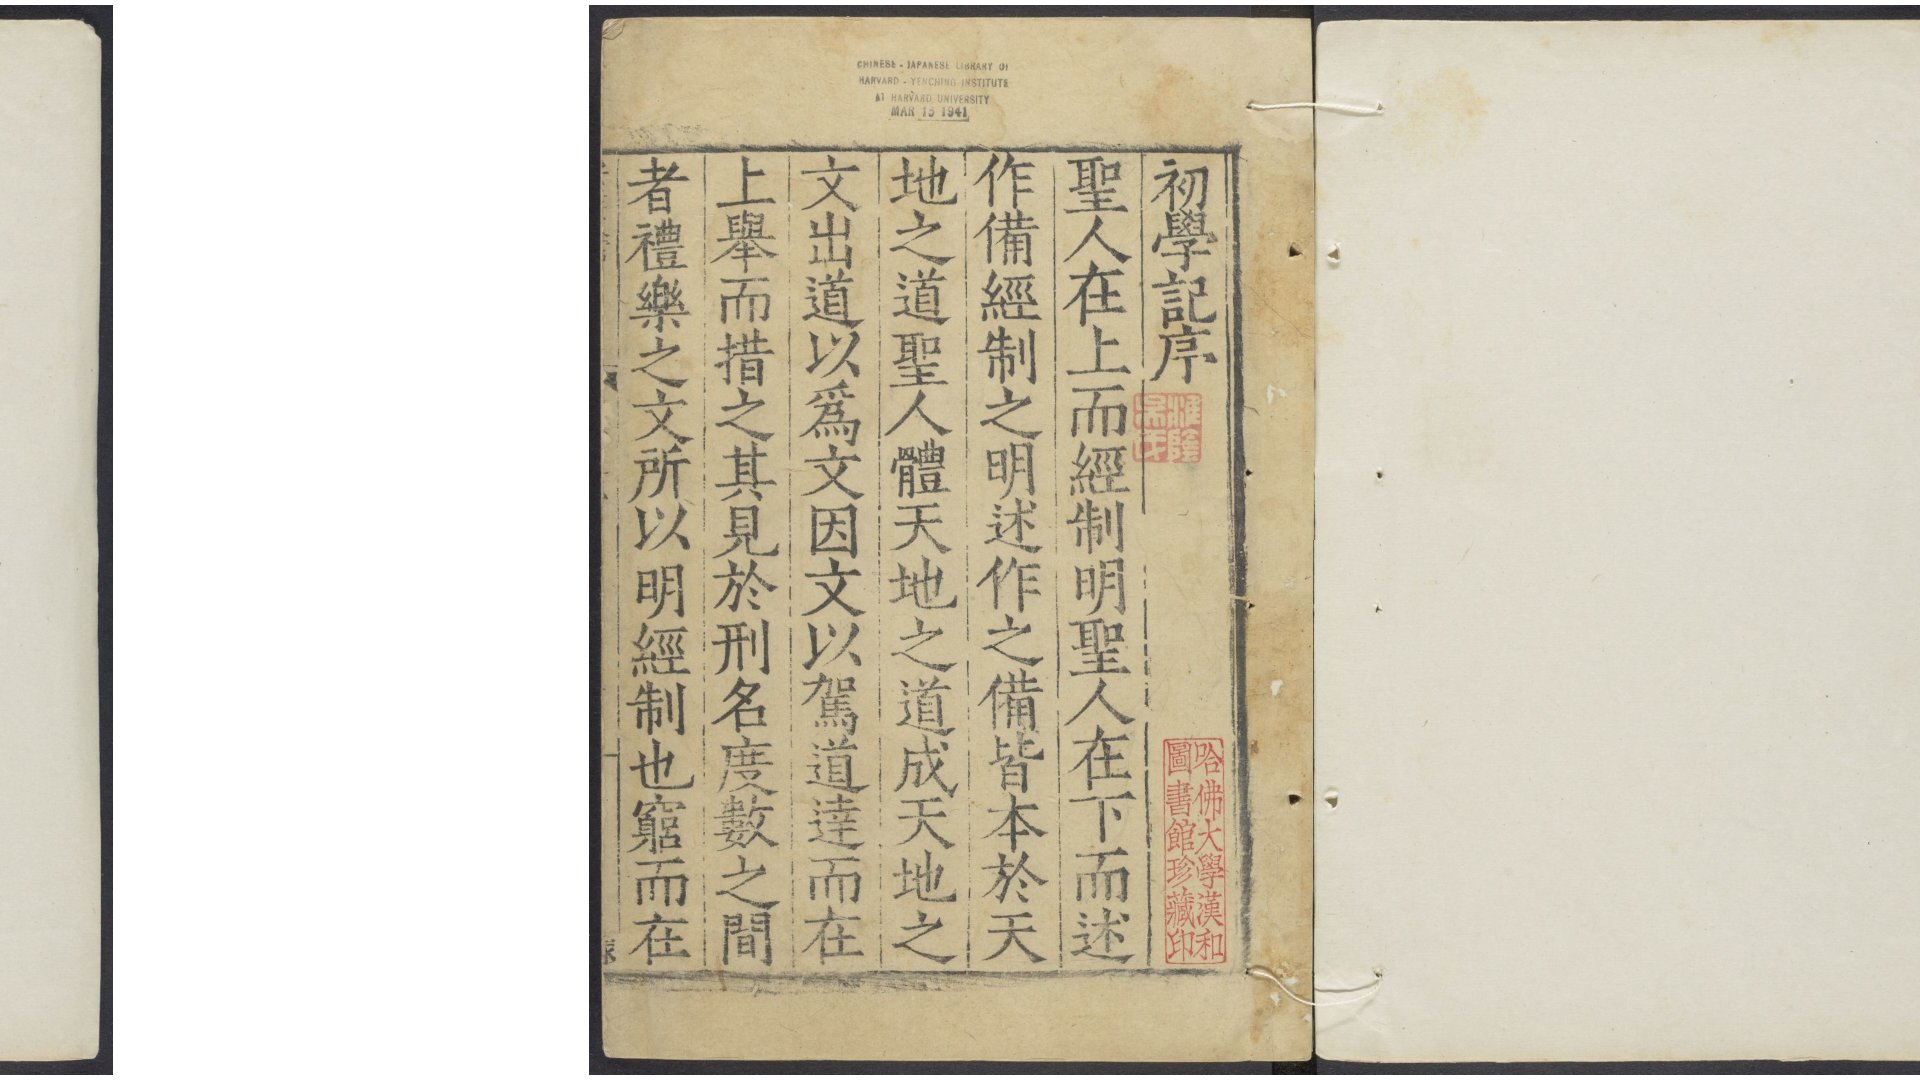 CHINESE - JAPANESE LIBRARY OF
HARVARD - YENCHING INSTITUTE
AT HARVARD UNIVERSITY
MAR 15 1941
初學記序
聖人在上而經制明聖人在下而述
作備經制之明述作之備皆本於天
地之道聖人體天地之道成天地之
文出道以爲文因文以駕道達而在
上舉而措之其見於刑名度數之間
者禮樂之文所以明經制也窮而在
哈佛大學漢和
圖書館珍藏印